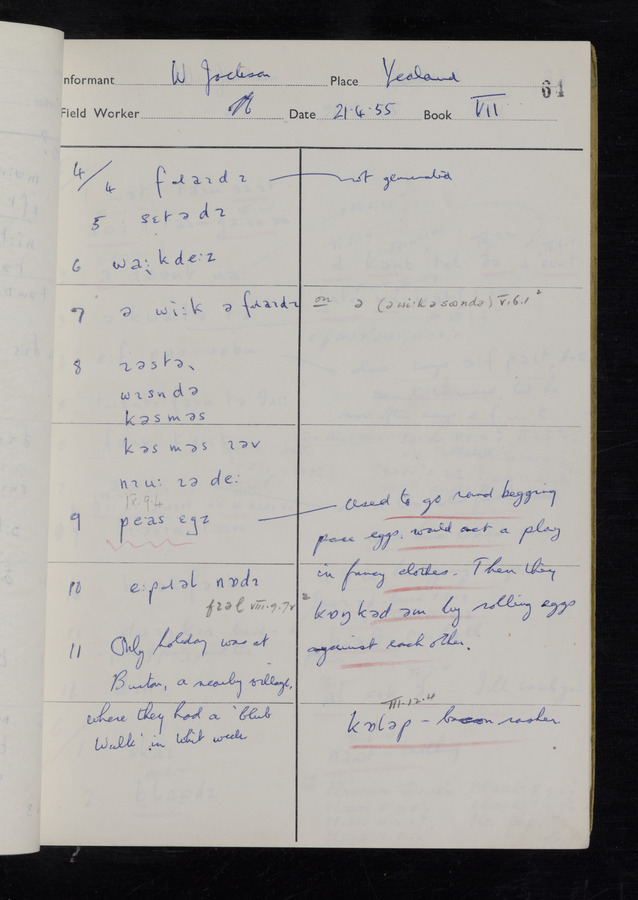 Informant W Jackson Place Yealand 64
Field Worker Date 21·4·55 Book VII
4/4 fɹaɪdɪ — not generated
5 sɛtədɪ
6 wa:kde:z
7 ə wi:k ə fɹaɪdɪ on ə (əwi·kəsɒndə) V.6.1
8 ɪəstə,
wɪsndə
kəsməs
kəsməs ɪəv
nɪu: ɪə de:
IX.9.4
9 peːas ɛgz — used to go round begging
pace eggs. would act a play
in fancy clothes. Then they
10 e:pɹəl nɒdɪ
VIII.9.7
kɒŋkəd əm by rolling eggs
11 Only holiday was at against each other.
Burton, a nearby village,
III.12.4
where they had a 'Club kɒləp – bacon rasher
Walk' in Whit week